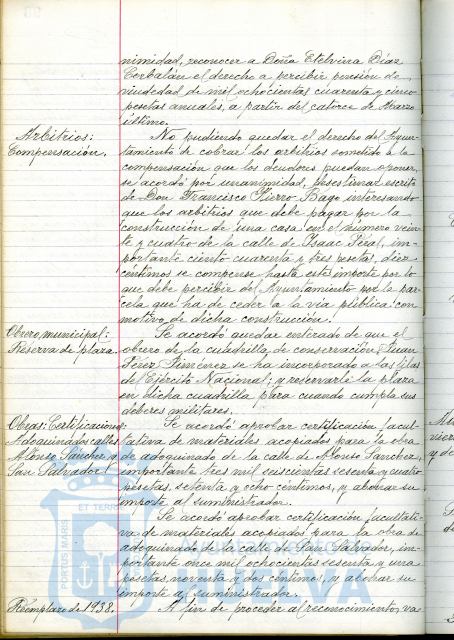 nimidad, reconocer a Doña Etelvina Díaz
Corbalán el derecho a percibir pensión de
viudedad de mil ochocientas cuarenta y cinco
pesetas anuales, a partir del catorce de Marzo
último.
Arbitrios:
Compensación.
No pudiendo quedar el derecho del Ayun-
tamiento de cobrar los arbitrios sometido a la
compensación que los deudores puedan oponer,
se acordó por unanimidad, desestimar escrito
de Don Francisco Hierro Bago interesando
que los arbitrios que debe pagar por la
construcción de una casa en el número vein-
te y cuatro de la calle de Isaac Peral, im-
portante ciento cuarenta y tres pesetas, diez
céntimos se compense hasta este importe por lo
que debe percibir del Ayuntamiento por la par-
cela que ha de ceder a la vía pública con
motivo de dicha construcción.
Obrero municipal:
Reserva de plaza.
Se acordó quedar enterado de que el
obrero de la cuadrilla de conservación Juan
Pérez Jiménez se ha incorporado a las filas
del Ejército Nacional; y reservarle la plaza
en dicha cuadrilla para cuando cumpla sus
deberes militares.
Obras: Certificaciones
Adoquinados calles
Alonso Sánchez y
San Salvador.
Se acordó aprobar certificación facul-
tativa de materiales acopiados para la obra
de adoquinado de la calle de Alonso Sanchez,
importante tres mil seiscientas sesenta y cuatro
pesetas, setenta y ocho céntimos, y abonar su
importe al suministrador.
Se acordó aprobar certificación facultati-
va de materiales acopiados para la obra de
adoquinado de la calle de San Salvador, im-
portante once mil ochocientas sesenta y una
pesetas, noventa y dos céntimos, y abonar su
importe al suministrador.
Reemplazo de 1938.
A fin de proceder al reconocimiento, va
PORTUS MARIS ET TERRE
Ayuntamiento de
HUELVA